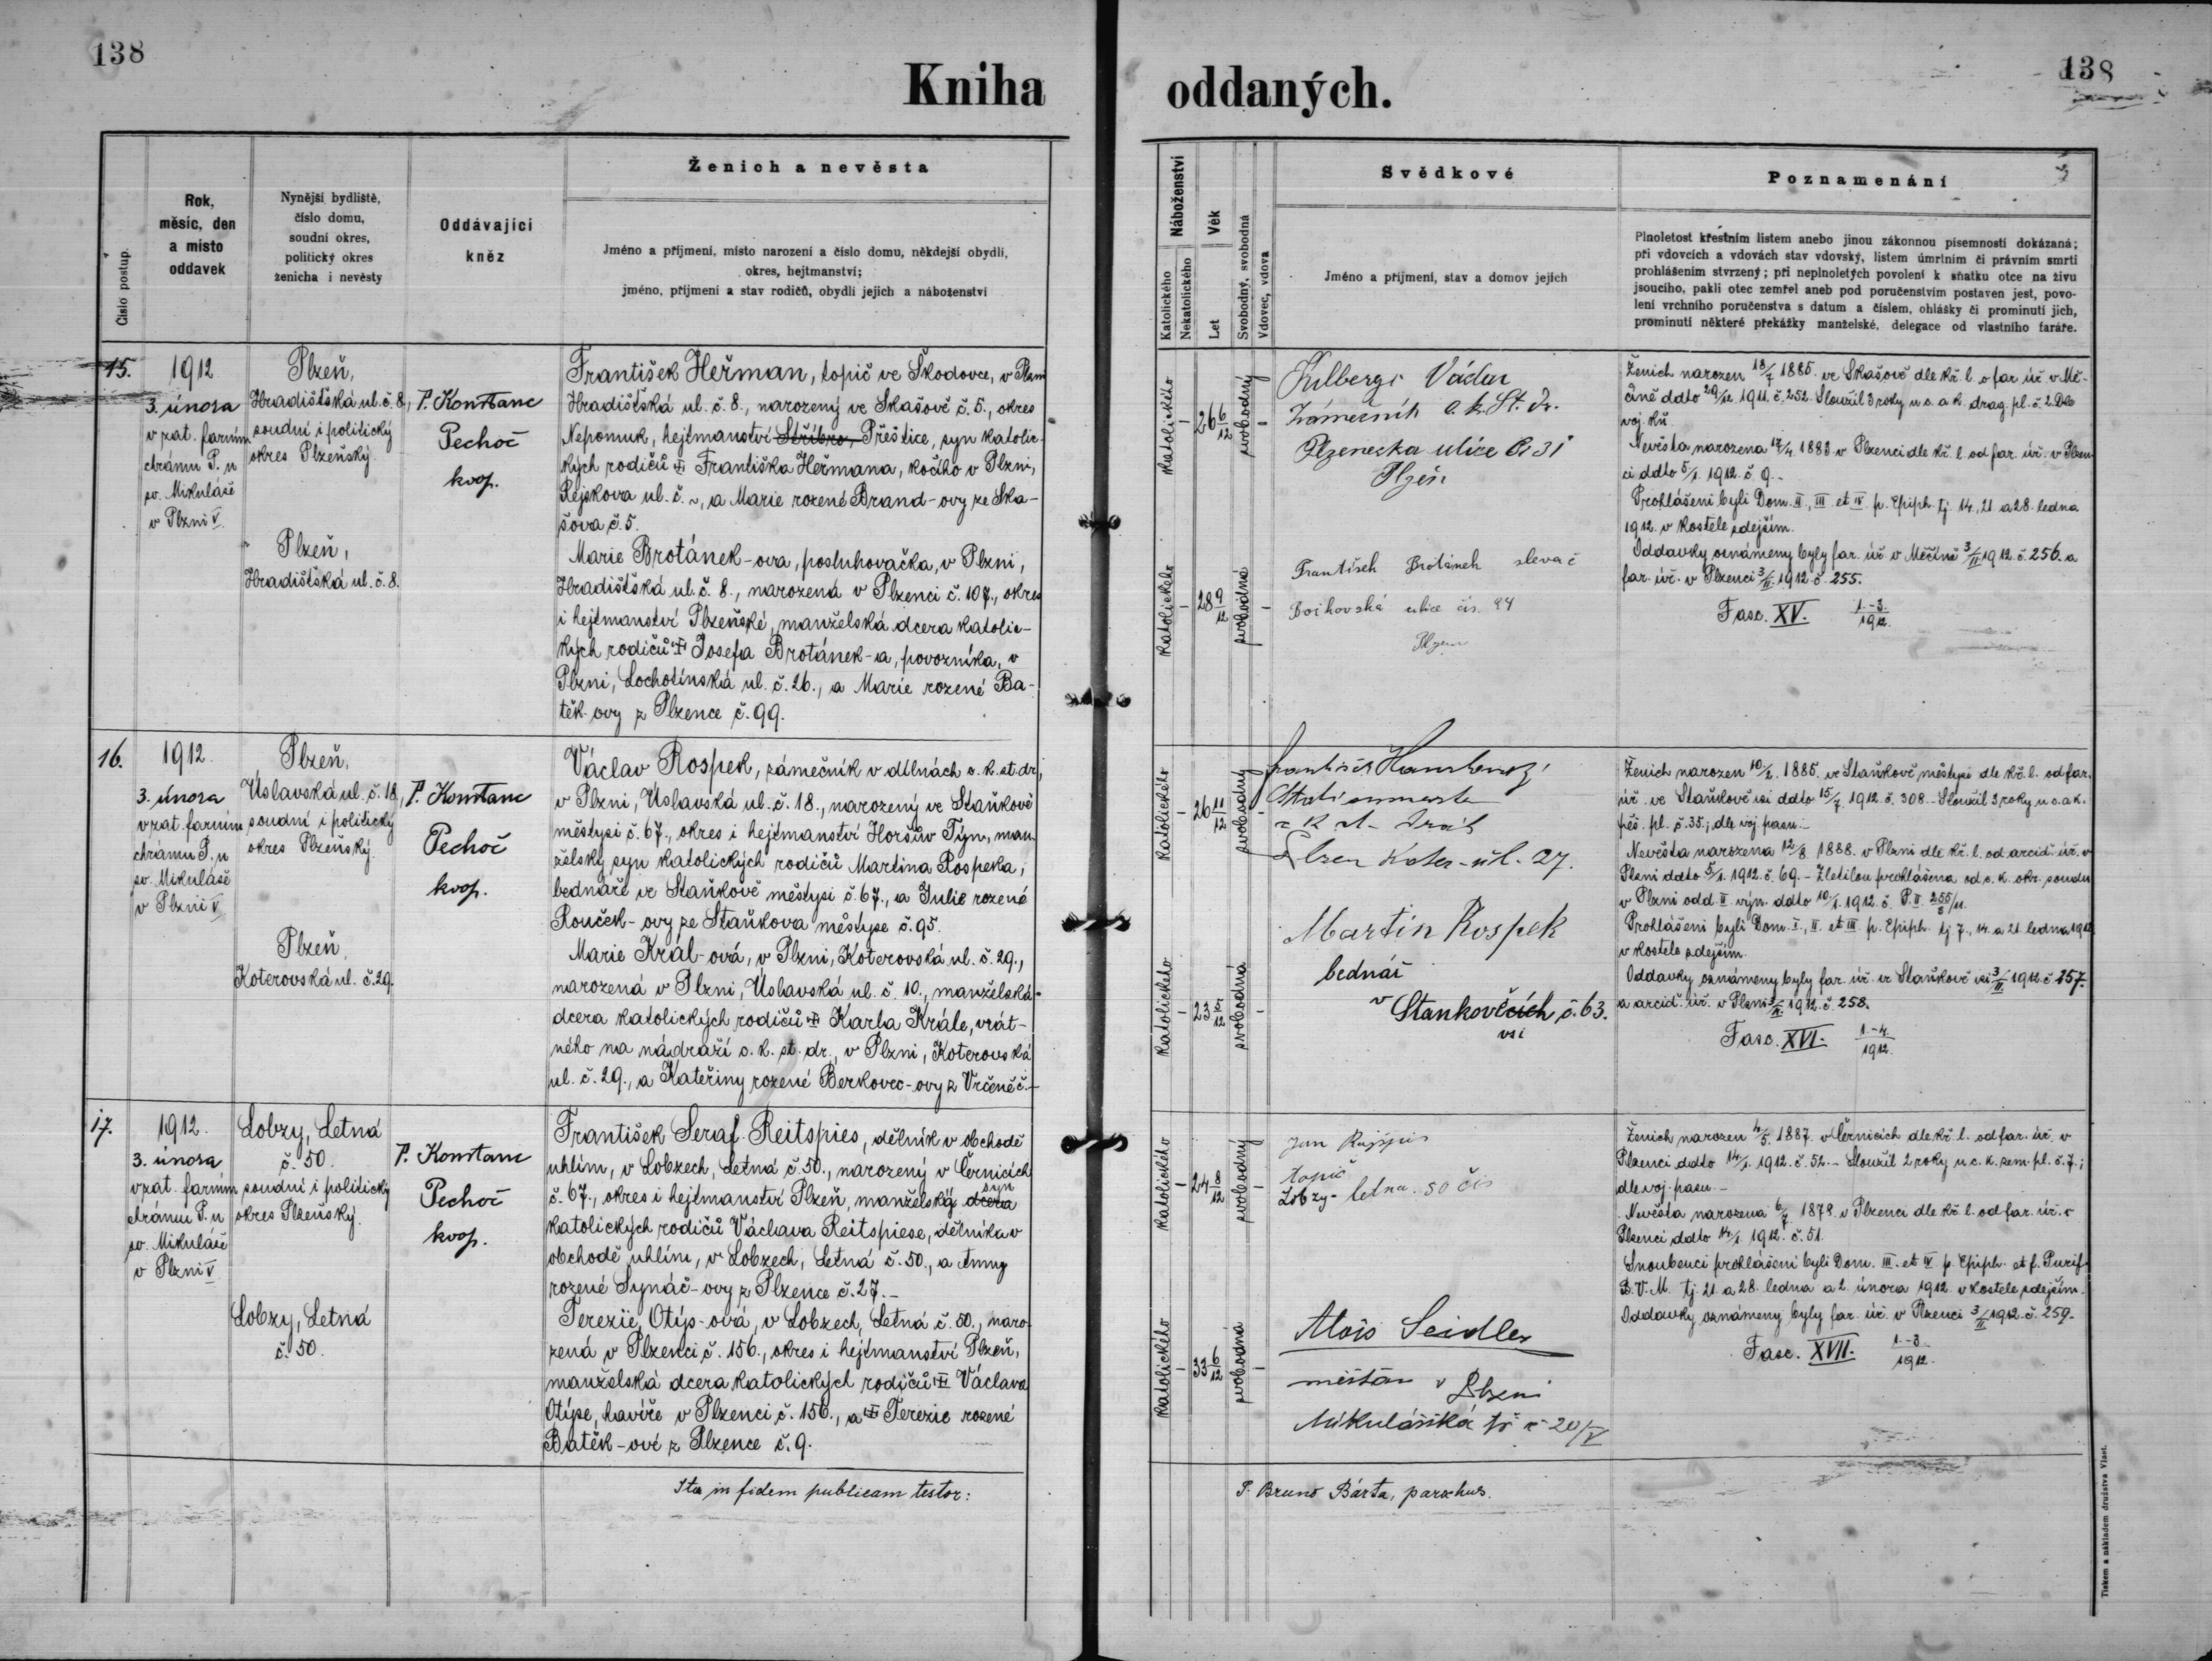 138
138
Kniha oddaných.
Číslo postup.
Rok,
měsíc, den
a místo
oddavek
Nynější bydliště,
číslo domu,
soudní okres,
politický okres
ženicha i nevěsty
Oddávající
kněz
Ženich a nevěsta
Jméno a příjmení, místo narození a číslo domu, někdejší obydlí,
okres, hejtmanství;
jméno, příjmení a stav rodičů, obydlí jejich a náboženství
Náboženství
Katolického
Nekatolického
Věk
Let
Svobodný, svobodná
Vdovec, vdova
Svědkové
Jméno a příjmení, stav a domov jejich
Poznamenání
Plnoletost křestním listem anebo jinou zákonnou písemností dokázaná;
při vdovcích a vdovách stav vdovský, listem úmrtním či právním smrti
prohlášením stvrzený; při neplnoletých povolení k sňatku otce na živu
jsoucího, pakli otec zemřel aneb pod poručenstvím postaven jest, povo-
lení vrchního poručenstva s datum a číslem, ohlášky či prominutí jich,
prominutí některé překážky manželské, delegace od vlastního faráře.
15.
1912
3. února
v zat. farním
chrámu P. u
sv. Mikuláše
v Plzni V.
Plzeň,
Hradišťská ul. č. 8,
soudní i politický
okres Plzeňský.
Plzeň,
Hradišťská ul. č. 8.
P. Konstanc
Pechoč
koop.
František Heřman, topič ve Škodovce, v Plzni
Hradišťská ul. č. 8., narozený ve Skašově č. 5., okres
Nepomuk, hejtmanství Stříbro, Přeštice, syn katolic-
kých rodičů ✠ Františka Heřmana, kočího v Plzni,
Rejskova ul. č. ~, a Marie rozené Brand-ovy ze Ska-
šova č. 5.
Marie Brotánek-ova, posluhovačka, v Plzni,
Hradišťská ul. č. 8., narozená v Plzenci č. 107., okres
i hejtmanství Plzeňské, manželská dcera katolic-
kých rodičů ✠ Josefa Brotánek-a, povozníka, v
Plzni, Lochotínská ul. č. 26., a Marie rozené Ba-
těk-ovy z Plzence č. 99.
Katolického
-
26 6/12
svobodný
-
Katolického
-
28 9/12
svobodná
-
Václav
Zámečník c. k. St. Dr.
Plzenecka ulice Čí 31
Plzeň
František Brotánek slevač
ulice čís. 94
Plzeň
Ženich narozen 18/7 1885. ve Skašově dle kř. l. o far. úř. v Mě-
číně ddto 29/12. 1911. č. 252. Sloužil 3 roky u c. a k. drag. pl. č. 2. Dle
voj. kn.
Nevěsta narozena 17/4. 1883 v Plzenci dle kř. l. od far. úř. v Plzen-
ci ddto 5/1. 1912. č. 9.-
Prohlášeni byli Dom. II., III. et IV. p. Epiph. tj. 14., 21 a 28. ledna
1912. v kostele zdejším.
Oddavky oznámeny byly far. úř. v Měčíně 3/II 1912. č. 256. a
far. úř. v Plzenci 3/II. 1912 č. 255.
Fasc. XV. 1.-3./1912.
16.
1912.
3. února
v zat. farním
chrámu P. u
sv. Mikuláše
v Plzni V.
Plzeň,
Úslavská ul. č. 18,
soudní i politický
okres Plzeňský.
Plzeň,
Koterovská ul. č. 29.
P. Konstanc
Pechoč
koop.
Václav Rospek, zámečník v dílnách c. k. st. dr.,
v Plzni, Úslavská ul. č. 18., narozený ve Staňkově
městysi č. 67., okres i hejtmanství Horšův Týn, man-
želský syn katolických rodičů Martina Rospeka,
bednáře ve Staňkově městysi č. 67., a Julie rozené
Rouček-ovy ze Staňkova městyse č. 95.
Marie Král-ová, v Plzni, Koterovská ul. č. 29.,
narozená v Plzni, Úslavská ul. č. 10., manželská
dcera katolických rodičů ✠ Karla Krále, vrát-
ného na nádraží c. k. st. dr., v Plzni, Koterovská
ul. č. 29., a Kateřiny rozené Berkovec-ovy z Vrčeně č.-
Katolického
-
26 11/12
svobodný
-
Katolického
-
23 5/12
svobodná
-
František
c. k. st. drah
Plzen Koter. ul. 27.
Martin Rospek
bednář
v Stankovčcích č. 63.
vsi
Ženich narozen 10/2. 1885. ve Staňkově městysi dle kř. l. od far.
úř. ve Staňkově vsi ddto 15/7. 1912. č. 308.- Sloužil 3 roky u c. a k.
pěš. pl. č. 35.; dle voj. pasu.-
Nevěsta narozena 12/8. 1888. v Plzni dle kř. l. od arcid. úř. v
Plzni ddto 5/1. 1912. č. 69.- Zletilou prohlášena od c. k. okr. soudu
v Plzni odd. II. výn. ddto 10/1. 1912. č. P. II. 255/8/11.
Prohlášeni byli Dom. I., II. et III. p. Epiph. tj 7., 14. a 21. ledna 1912
v kostele zdejším.
Oddavky oznámeny byly far. úř. ve Staňkově vsi 3/II. 1912. č. 257.
a arcid. úř. v Plzni 3/II. 1912. č. 258.
Fasc. XVI. 1.-4./1912.
17.
1912.
3. února
v zat. farním
chrámu P. u
sv. Mikuláše
v Plzni V.
Lobzy, Letná
č. 50.
soudní i politický
okres Plzeňský.
Lobzy, Letná
č. 50.
P. Konstanc
Pechoč
koop.
František Seraf. Reitspies, dělník v obchodě
uhlím, v Lobzech, Letná č. 50., narozený v Černicích
č. 67., okres i hejtmanství Plzeň, manželský dcera syn
katolických rodičů Václava Reitspiese, dělníka v
obchodě uhlím, v Lobzech, Letná č. 50., a Anny
rozené Synáč-ovy z Plzence č. 27.-
Terezie Otýs-ová, v Lobzech, Letná č. 50., naro-
zená v Plzenci č. 156., okres i hejtmanství Plzeň,
manželská dcera katolických rodičů ✠ Václava
Otýse, havíře v Plzenci č. 156., a ✠ Terezie rozené
Batěk-ové z Plzence č. 9.
Katolického
-
24 8/12
svobodný
-
Katolického
-
33 6/12
svobodná
-
Jan
topič
Lobzy- letna. 50 čís
Alois Seidler
měšťan v Plzni
Mikulášská tř č 20/V
Ženich narozen 4/5. 1887. v Černicích dle kř. l. od far. úř. v
Plzenci ddto 14/1. 1912. č. 52.- Sloužil 2 roky u c. k. zem. pl. č. 7.;
dle voj. pasu.-
Nevěsta narozena 6/7. 1878. v Plzenci dle kř. l. od far. úř. v
Plzenci ddto 14/1. 1912. č. 51.
Snoubenci prohlášeni byli Dom. III. et IV. p. Epiph. et f. Purif.
B. V. M. tj. 21. a 28. ledna a 2. února 1912. v kostele zdejším.
Oddavky oznámeny byly far. úř. v Plzenci 3/II 1912. č. 259.
Fasc. XVII. 1.-3./1912.
Ita in fidem publicam testor: P. Bruno Bárta, parochus.
Tiskem a nákladem družstva Vlast.